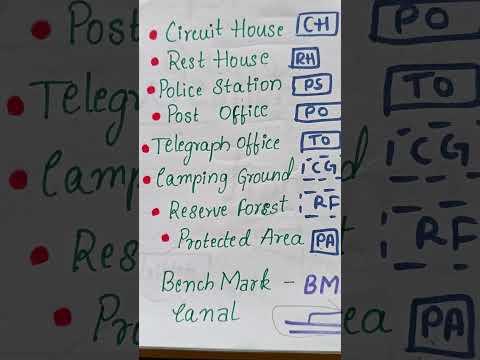 Circuit House CH
Rest House RH
Police Station PS
Post Office PO
Telegraph Office TO
Camping Ground CG
Reserve Forest RF
Protected Area PA
Bench Mark - BM
Canal